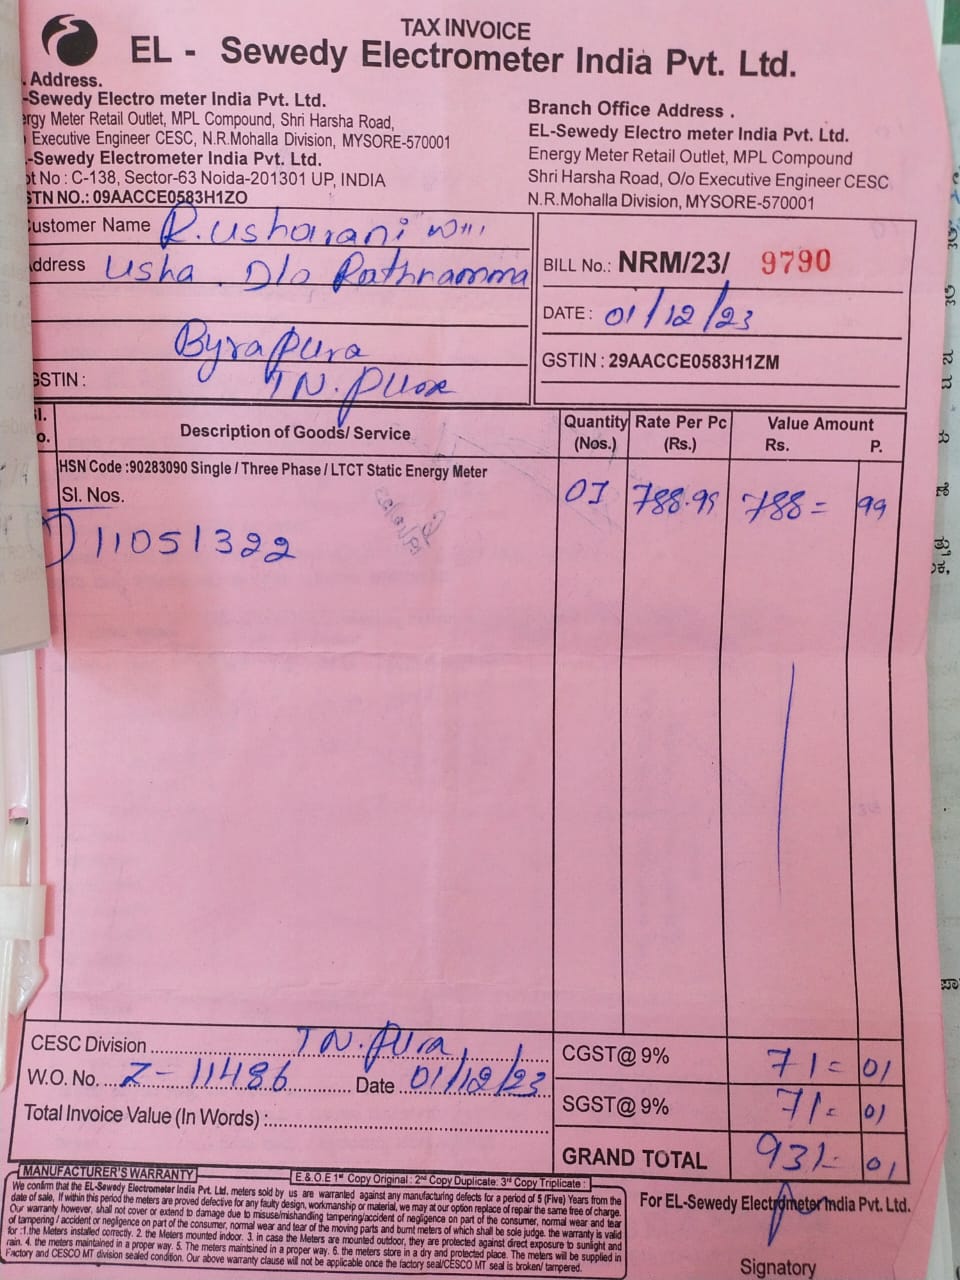 TAX INVOICE
EL - Sewedy Electrometer India Pvt. Ltd.
. Address.
-Sewedy Electro meter India Pvt. Ltd.
rgy Meter Retail Outlet, MPL Compound, Shri Harsha Road,
Executive Engineer CESC, N.R.Mohalla Division, MYSORE-570001
-Sewedy Electrometer India Pvt. Ltd.
ot No : C-138, Sector-63 Noida-201301 UP, INDIA
STN NO.: 09AACCE0583H1ZO
Branch Office Address .
EL-Sewedy Electro meter India Pvt. Ltd.
Energy Meter Retail Outlet, MPL Compound
Shri Harsha Road, O/o Executive Engineer CESC
N.R.Mohalla Division, MYSORE-570001
ustomer Name R.usharani
ddress Usha. D/o Rathnamma
Byrapura
GSTIN : TN.pura
BILL No.: NRM/23/ 9790
DATE : 01/12/23
GSTIN : 29AACCE0583H1ZM
Sl. No. Description of Goods/ Service Quantity (Nos.) Rate Per Pc (Rs.) Value Amount Rs. P.
HSN Code :90283090 Single / Three Phase / LTCT Static Energy Meter
Sl. Nos. 01 788.99 788= 99
11051322
CESC Division TN.pura
W.O. No. Z-11486 Date 01/12/23
Total Invoice Value (In Words) :
CGST@ 9% 71= 01
SGST@ 9% 71= 01
GRAND TOTAL 931= 01
MANUFACTURER'S WARRANTY
E & O.E 1st Copy Original : 2nd Copy Duplicate: 3rd Copy Triplicate :
We confirm that the EL-Sewedy Electrometer India Pvt. Ltd. meters sold by us are warranted against any manufacturing defects for a period of 5 (Five) Years from the
date of sale, If within this period the meters are proved defective for any faulty design, workmanship or material, we may at our option replace of repair the same free of charge.
Our warranty however, shall not cover or extend to damage due to misuse/mishandling tampering/accident of negligence on part of the consumer, normal wear and tear
of tampering / accident or negligence on part of the consumer, normal wear and tear of the moving parts and burnt meters of which shall be sole judge. the warranty is valid
for :1.the Meters installed correctly. 2. the Meters mounted indoor. 3. in case the Meters are mounted outdoor, they are protected against direct exposure to sunlight and
rain. 4. the meters maintained in a proper way. 5. The meters maintsined in a proper way. 6. the meters store in a dry and protected place. The meters will be supplied in
Factory and CESCO MT division sealed condition. Our above warranty clause will not be applicable once the factory seal/CESCO MT seal is broken/ tampered.
For EL-Sewedy Electrometer India Pvt. Ltd.
Signatory